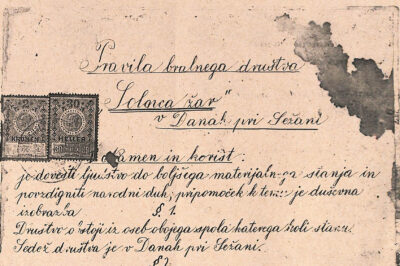 Pravila bralnega društva
"Solnca žar"
v Danah pri Sežani
2 30
KRONEN HELLER
Namen in korist:
je dovesti ljudstvo do boljšega materijalnega stanja in
povzdigniti narodni duh, pripomoček k temu je duševna
izobrazba
§ 1.
Društvo obstoji iz oseb obojega spola katerega koli stanu.
Sedež društva je v Danah pri Sežani.
§ 2.